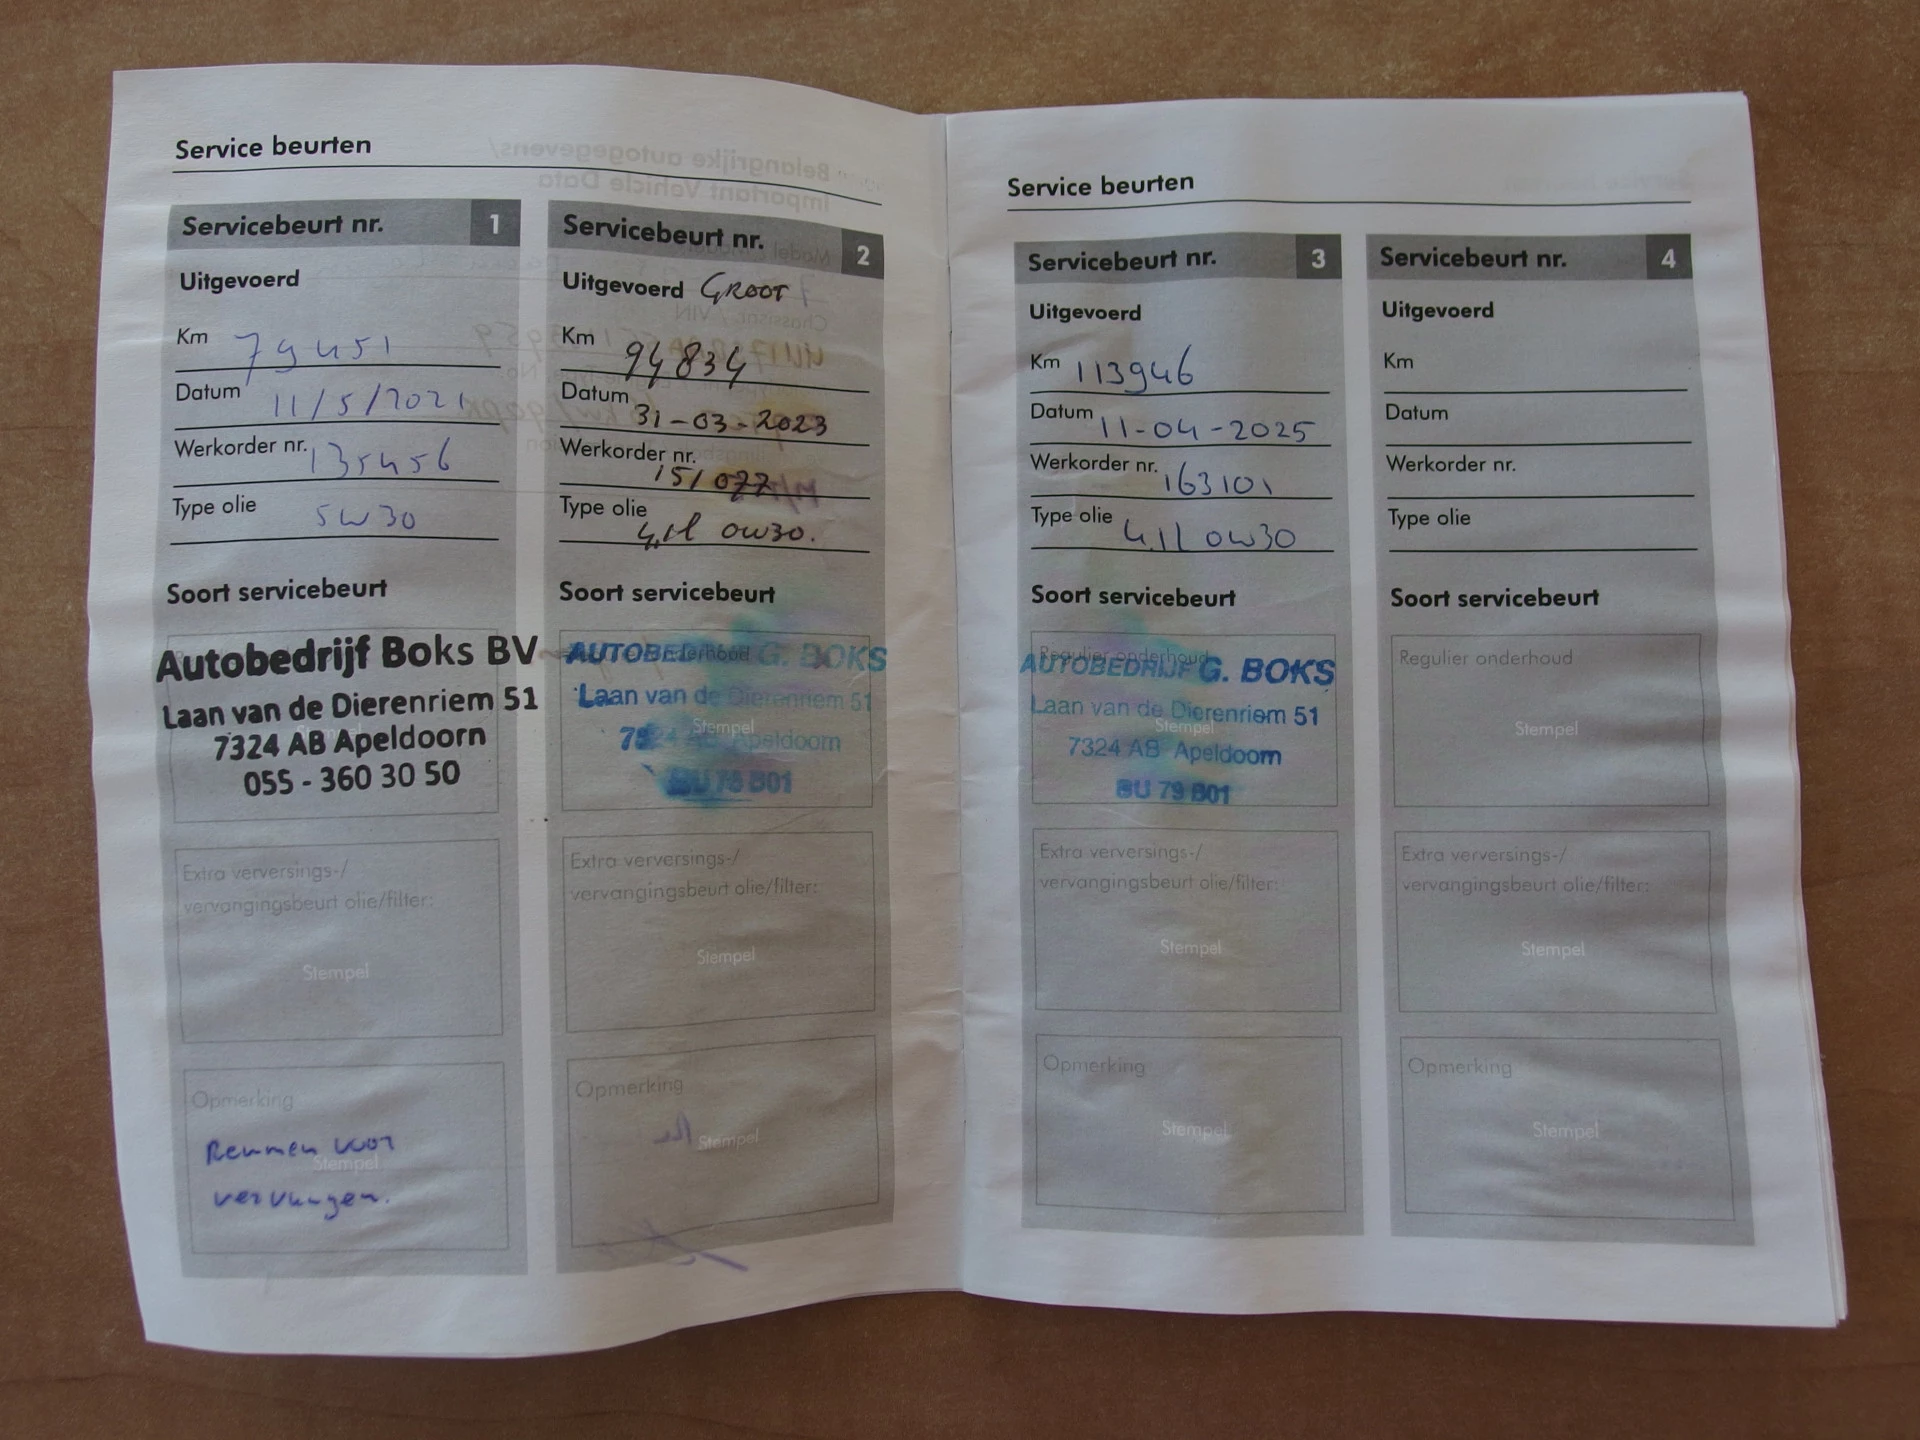 Service beurten
Servicebeurt nr. 1
Uitgevoerd
Km 79451
Datum 11/5/2021
Werkorder nr. 135456
Type olie 5W30
Soort servicebeurt
Autobedrijf Boks BV
Laan van de Dierenriem 51
7324 AB Apeldoorn
055 - 360 30 50
Extra verversings-/
vervangingsbeurt olie/filter:
Stempel
Opmerking
Remmen voor
Stempel
vervangen.
Servicebeurt nr. 2
Uitgevoerd GROOT
Km 94834
Datum 31-03-2023
Werkorder nr. 151077
Type olie 4,1l 0W30.
Soort servicebeurt
AUTOBEDRIJF G. BOKS
Laan van de Dierenriem 51
Stempel
7324 AB Apeldoorn
BU 79 B01
Extra verversings-/
vervangingsbeurt olie/filter:
Stempel
Opmerking
Stempel
Service beurten
Servicebeurt nr. 3
Uitgevoerd
Km 113946
Datum 11-04-2025
Werkorder nr. 163101
Type olie 4,1l 0W30
Soort servicebeurt
Regulier onderhoud
AUTOBEDRIJF G. BOKS
Laan van de Dierenriem 51
Stempel
7324 AB Apeldoorn
BU 79 B01
Extra verversings-/
vervangingsbeurt olie/filter:
Stempel
Opmerking
Stempel
Servicebeurt nr. 4
Uitgevoerd
Km
Datum
Werkorder nr.
Type olie
Soort servicebeurt
Regulier onderhoud
Stempel
Extra verversings-/
vervangingsbeurt olie/filter:
Stempel
Opmerking
Stempel